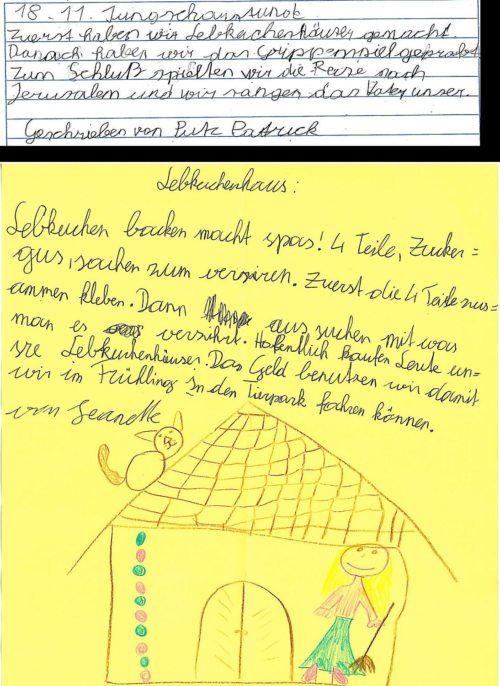 18.11. Jungscharstunde
Zuerst haben wir Lebkuchenhäuser gemacht.
Danach haben wir das Grippenspiel geprobt.
Zum Schluß spielten wir die Reise nach
Jerusalem und wir sangen das Vater unser.
Geschrieben von Putz Patrick
Lebkuchenhaus:
Lebkuchen backen macht spas! 4 Teile, Zucker=
gus, sachen zum verziren. Zuerst die 4 Teile zus=
ammen kleben. Dann aus suchen mit was
man es verzihrt. Hofentlich kaufen Leute un=
sre Lebkuchenhäuser. Das Geld benutzen wir damit
wir im Frühling in den Tierpark fahren können.
von Jeanette